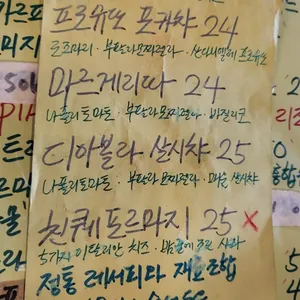 프로슈또 포카챠 24
로즈마리 · 부팔라모짜렐라 · 산다니엘레 프로슈또
마르게리따 24
나폴리토마토 · 부팔라모짜렐라 · 바질리코
디아볼라 살시챠 25
나폴리토마토 · 부팔라모짜렐라 · 매운 살시챠
친퀘 포르마지 25 X
5가지 이탈리안 치즈 ·
정통 레서피다 재조합